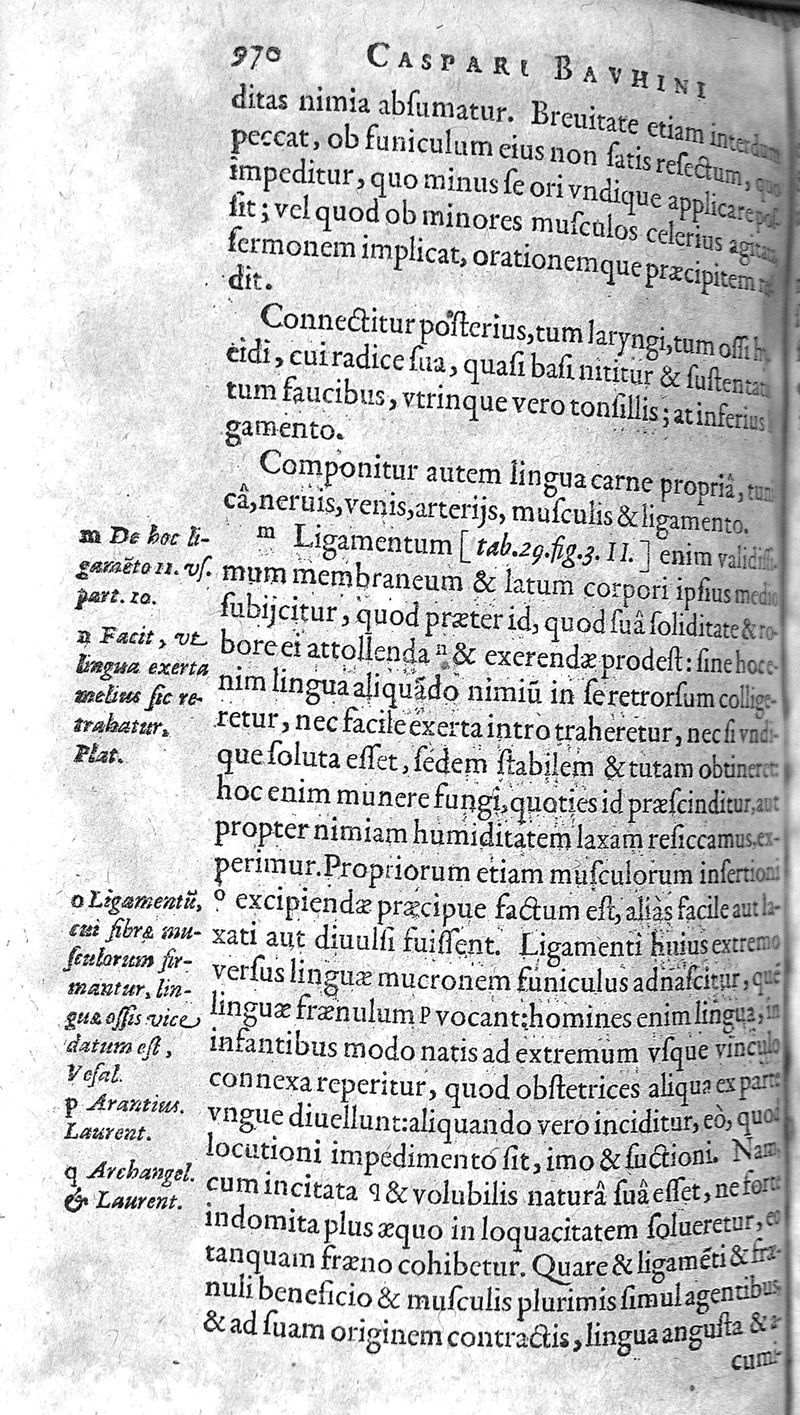 970 CASPARI BAVHINI
ditas nimia abſumatur. Breuitate etiam interdum
peccat, ob funiculum eius non ſatis reſectum, quo
impeditur, quo minus ſe ori vndique applicare poſ-
ſit; vel quod ob minores muſculos celerius agitata,
ſermonem implicat, orationemque præcipitem
dit.
Connectitur poſterius, tum laryngi, tum oſſi hy
eidi, cui radice ſua, quaſi baſi nititur & ſuſtentat
tum faucibus, vtrinque vero tonſillis; at inferius
gamento.
Componitur autem lingua carne propriâ, tuni
câ, neruis, venis, arterijs, muſculis & ligamento.
m Ligamentum [ tab.29.fig.3. II. ] enim validiſſi-
mum membraneum & latum corpori ipſius medio
ſubijcitur, quod præter id, quod ſuâ ſoliditate & ro-
bore ei attollenda n & exerendæ prodeſt: ſine hoc e-
nim lingua aliquãdo nimiũ in ſe retrorſum collige-
retur, nec facile exerta intro traheretur, nec ſi vndi-
que ſoluta eſſet, ſedem ſtabilem & tutam obtineret:
hoc enim munere fungi, quoties id præſcinditur, aut
propter nimiam humiditatem laxam reſiccamus, ex-
perimur. Propriorum etiam muſculorum inſertioni
o excipiendæ præcipue factum eſt, aliàs facile aut la-
xati aut diuulſi fuiſſent. Ligamenti huius extremo
verſus linguæ mucronem funiculus adnaſcitur, quẽ
linguæ frænulum p vocant: homines enim lingua, in
infantibus modo natis ad extremum vſque vinculo
connexa reperitur, quod obſtetrices aliqua ex parte
vngue diuellunt: aliquando vero inciditur, eò, quod
locutioni impedimento ſit, imo & ſuctioni. Nam,
cum incitata q & volubilis naturâ ſuâ eſſet, ne forte
indomita plus æquo in loquacitatem ſolueretur, eo
tanquam fræno cohibetur. Quare & ligamẽti & fræ-
nuli beneficio & muſculis plurimis ſimul agentibus,
& ad ſuam originem contractis, lingua anguſta &
cumi-
m De hoc li-
gamẽto 11. vſ.
part. 10.
n Facit, vt
lingua exerta
melius ſic re-
trahatur,
Plat.
o Ligamentũ,
cui fibræ mu-
ſculorum fir-
mantur, lin-
guæ oſſis vice
datum eſt,
Veſal.
p Arantius.
Laurent.
q Archangel.
& Laurent.